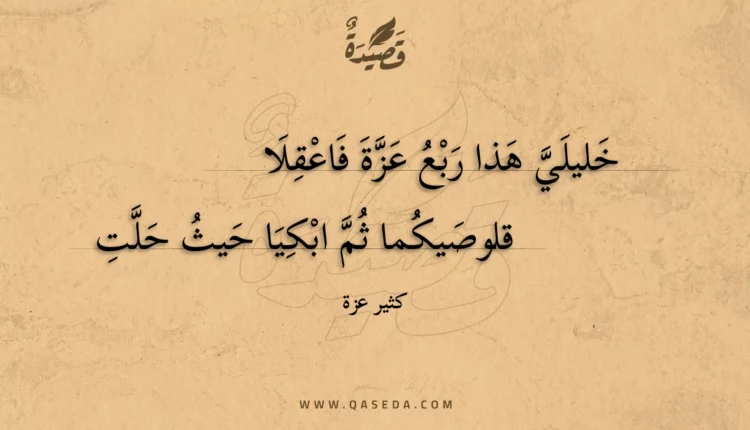 قَصِيدَةٌ
خَليلَيَّ هَذا رَبْعُ عَزَّةَ فَاعْقِلَا
قلوصَيكُما ثُمَّ ابْكِيَا حَيثُ حَلَّتِ
كثير عزة
WWW.QASEDA.COM